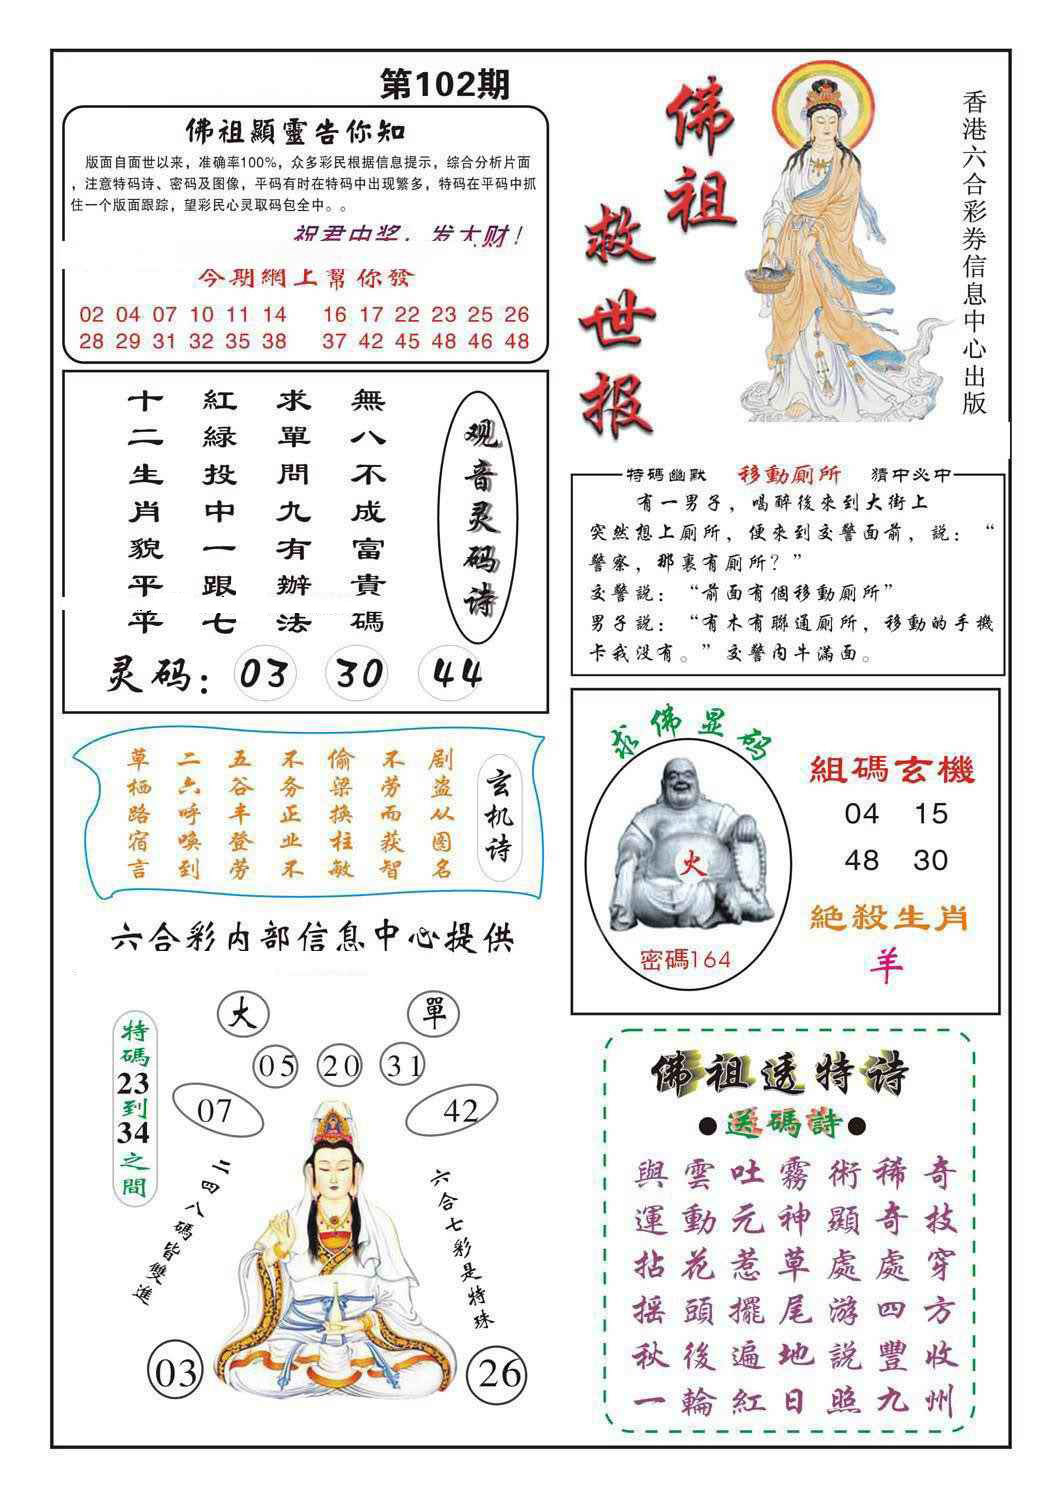 第102期
佛祖顯靈告你知
版面自面世以来，准确率100%，众多彩民根据信息提示，综合分析片面
，注意特码诗、密码及图像，平码有时在特码中出现繁多，特码在平码中抓
住一个版面跟踪，望彩民心灵取码包全中。。
祝君中奖，发大财！
今期網上幫你發
02 04 07 10 11 14 16 17 22 23 25 26
28 29 31 32 35 38 37 42 45 48 46 48
佛祖
救世报
香港六合彩券信息中心出版
观音灵码诗
無八不成富貴碼
求單問九有辦法
紅綠投中一跟七
十二生肖貌平平
灵码：03 30 44
特碼幽默 移動厠所 猜中必中
有一男子，喝醉後來到大街上
突然想上厠所，便來到交警面前，説：“
警察，那裏有厠所？”
交警説：“前面有個移動厠所”
男子説：“有木有聯通厠所，移動的手機
卡我没有。”交警内牛滿面。
玄机诗
剧盗从图名
不劳而获智
偷梁换柱敏
不务正业不
五谷丰登劳
二六呼唤到
草栖路宿言
求佛显码
火
密碼164
組碼玄機
04 15
48 30
絕殺生肖
羊
六合彩内部信息中心提供
大 單
05 20 31
07 42
特碼23到34之間
二四八碼皆雙進
六合七彩是特殊
03 26
佛祖透特诗
●送碼詩●
與雲吐霧術稀奇
運動元神顯奇技
拈花惹草處處穿
摇頭擺尾游四方
秋後遍地説豐收
一輪紅日照九州